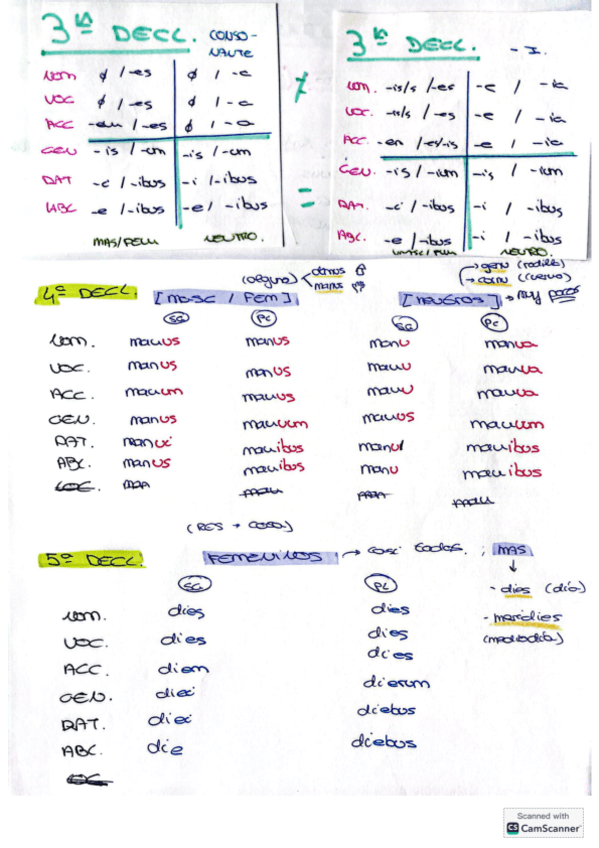 3ª DECL. CONSO-
NANTE
NOM ∅ / -es ∅ / -a
VOC ∅ / -es ∅ / -a
ACC -em / -es ∅ / -a
GEN -is / -um -is / -um
DAT -i / -ibus -i / -ibus
ABL -e / -ibus -e / -ibus
MAS/FEM NEUTRO.
≠
=
3ª DECL. - I.
NOM. -is/s / -es -e / -ia
VOC. -is/s / -es -e / -ia
ACC. -em / -es/-is -e / -ia
GEN. -is / -ium -is / -ium
DAT. -i / -ibus -i / -ibus
ABL. -e / -ibus -i / -ibus
MASC/FEM NEUTRO.
4ª DECL. [MASC / FEM] (alguno) domus
manus
[NEUTROS] → Muy pocos
→ genu (rodilla)
→ cornu (cuerno)
SG PL SG PL
NOM. manus manus manu manua
VOC. manus manus manu manua
ACC. manum manus manu manua
GEN. manus manuum manus manuum
DAT. manui manibus manu manibus
ABL. manus manibus manu manibus
(RES → COSA)
5ª DECL. FEMENINOS → casi todas. ; MAS
- dies (día)
- meridies
(mediodía)
SG PL
NOM. dies dies
VOC. dies dies
ACC. diem dies
GEN. diei dierum
DAT. diei diebus
ABL. die diebus
Scanned with
CS CamScanner